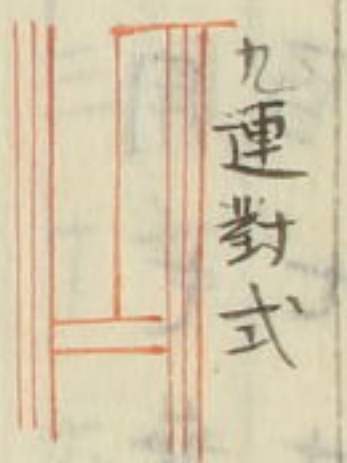 九連對式